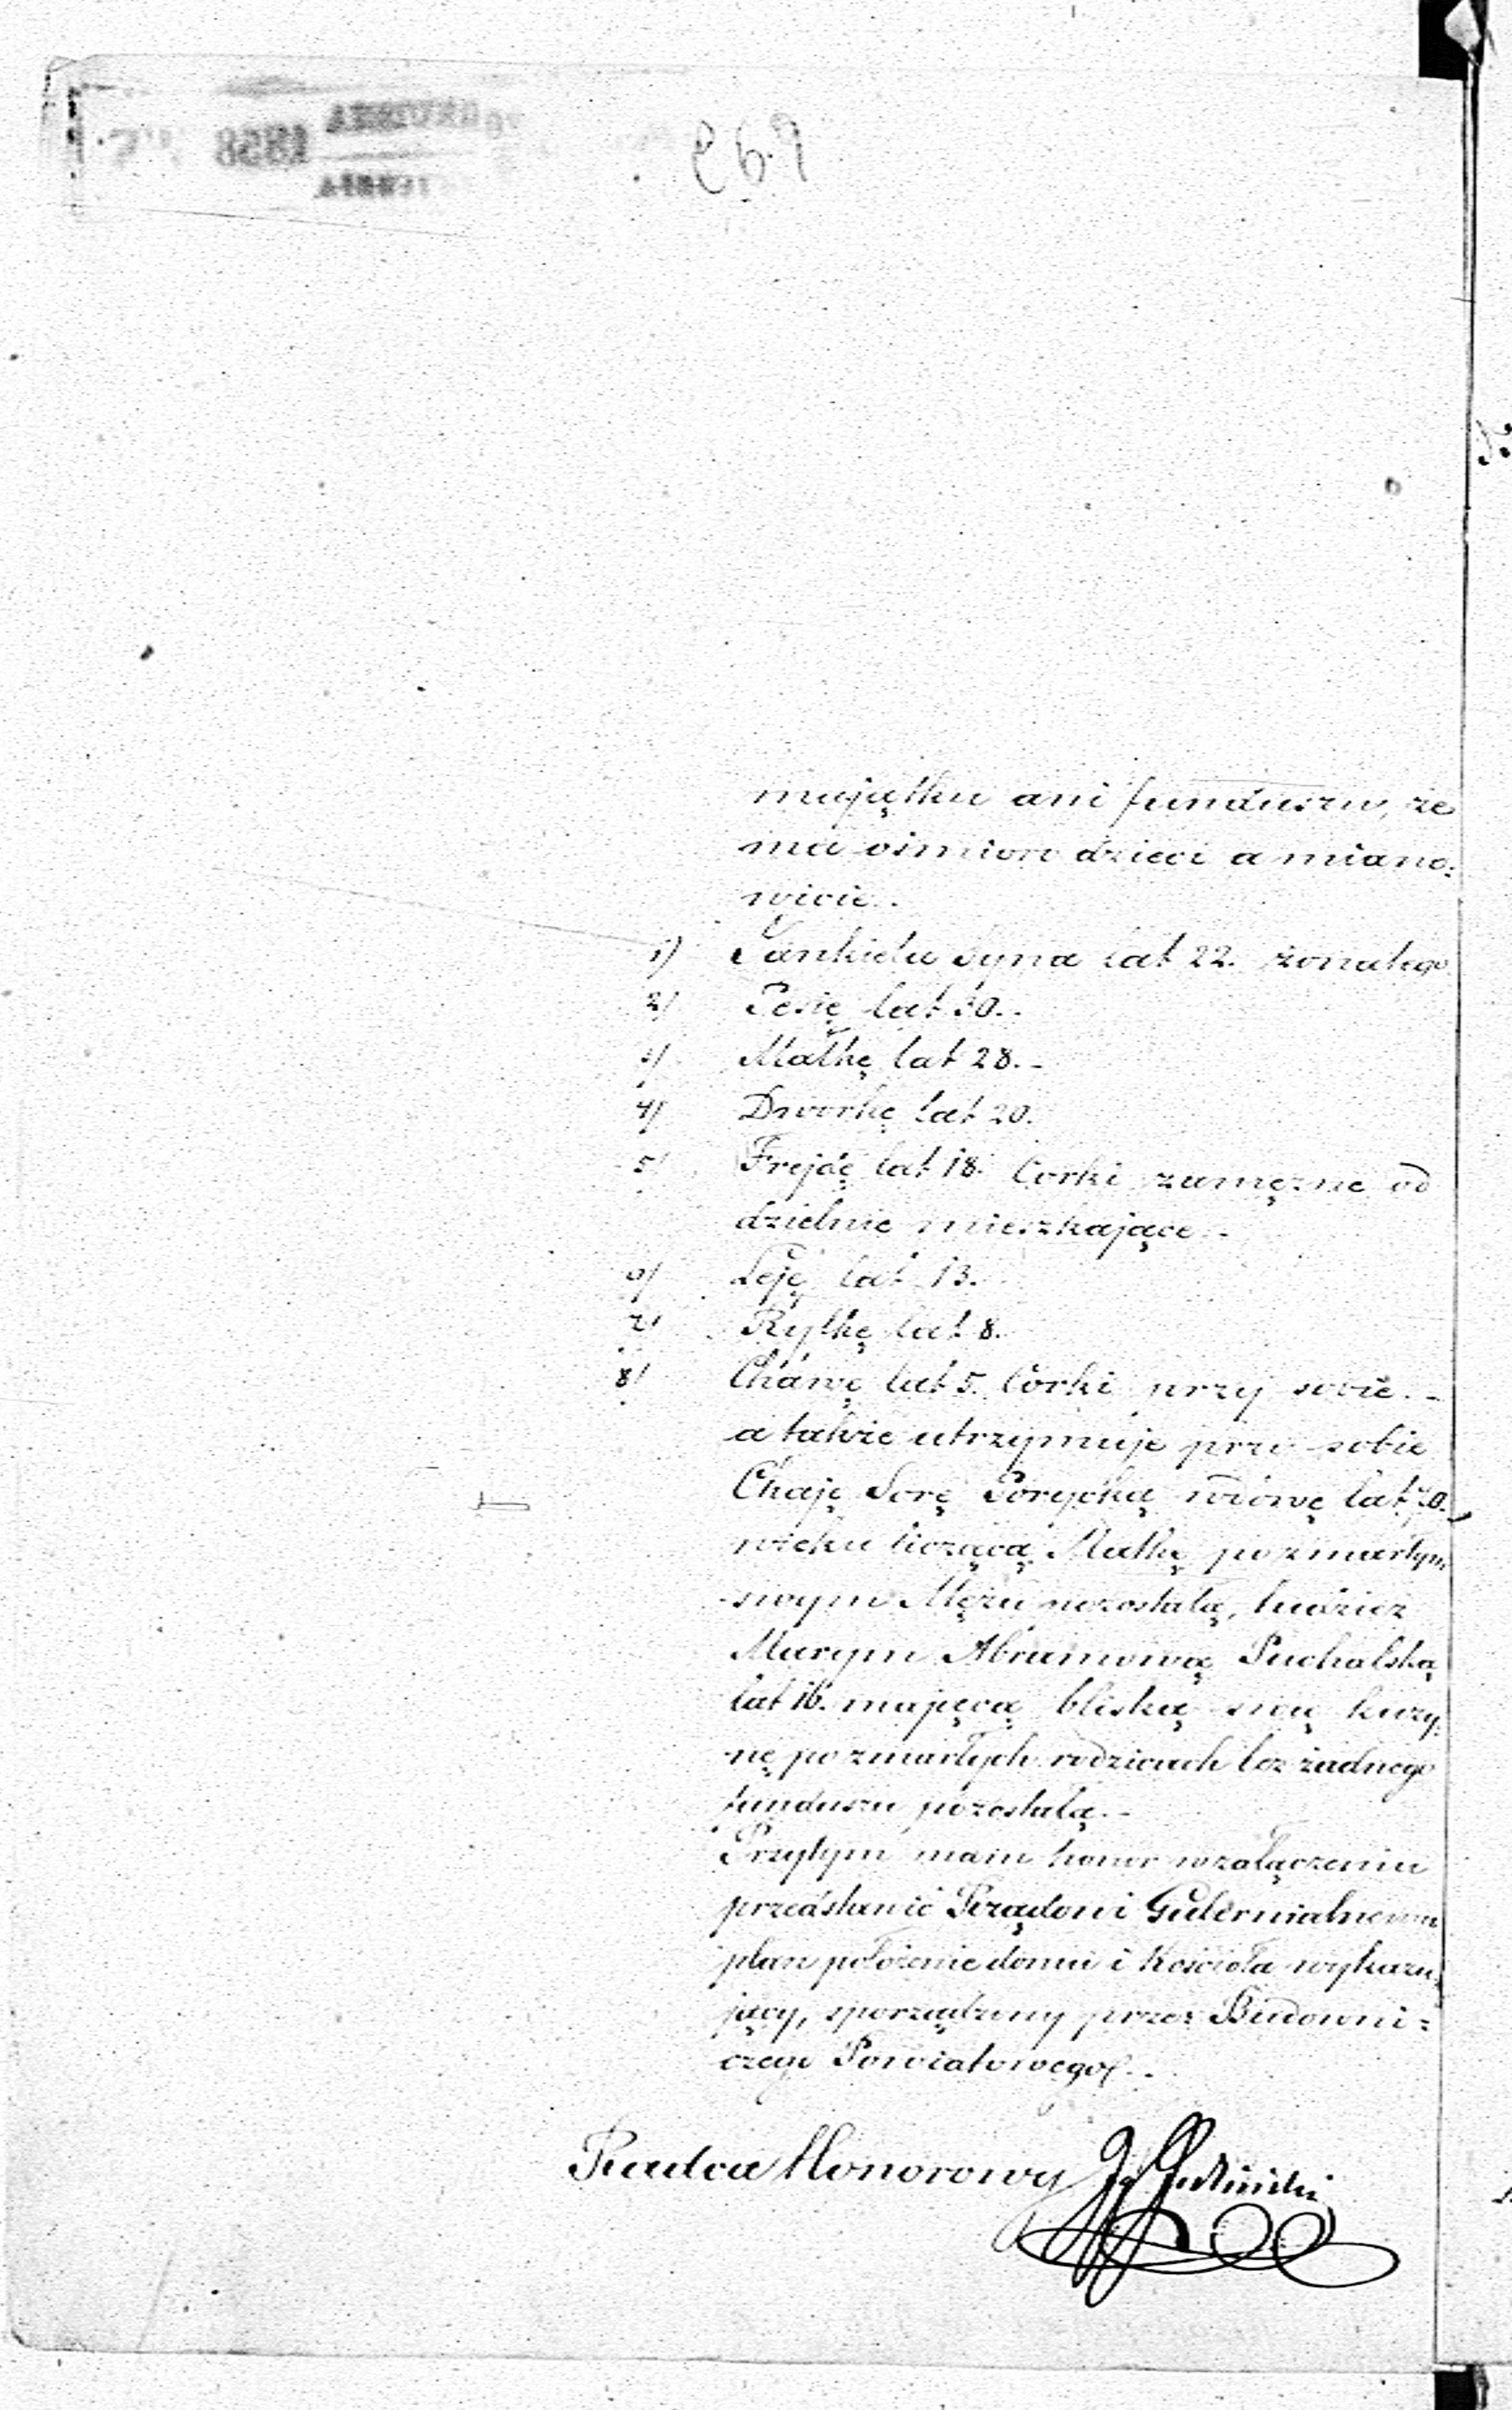 majątku ani funduszu, że
ma ośmioro dzieci a miano:
wicie.
1) Jankiela Syna lat 22. żonatego
2/ Pesię lat 30.-
3/ Małkę lat 28.-
4/ Dworkę lat 20.
5/ Frejdę lat 18. Corki zamężne od
dzielnie mieszkające.-
6/ Leję lat 13.
7/ Ryfkę lat 8.
8/ Chawę lat 5. Córki przy sobie.-
a także utrzymuje przy sobie
Chaję Sorę wdowę lat 70.
wieku liczącą Matkę po zmarłym
swym Mężu pozostałą, tudzież
Marym Abramową Puchalską
lat 16. mającą bliską swą kuzy:
nę po zmarłych rodzicach bez żadnego
funduszu pozostałą.-
Przytym mam honor w załączeniu
przedstawić Rządowi Gubernialnemu
plan położenie domu i Kościoła wykazu:
jący, sporządzony przez Budowni:
czego Powiatowego.-
Radca Honorowy